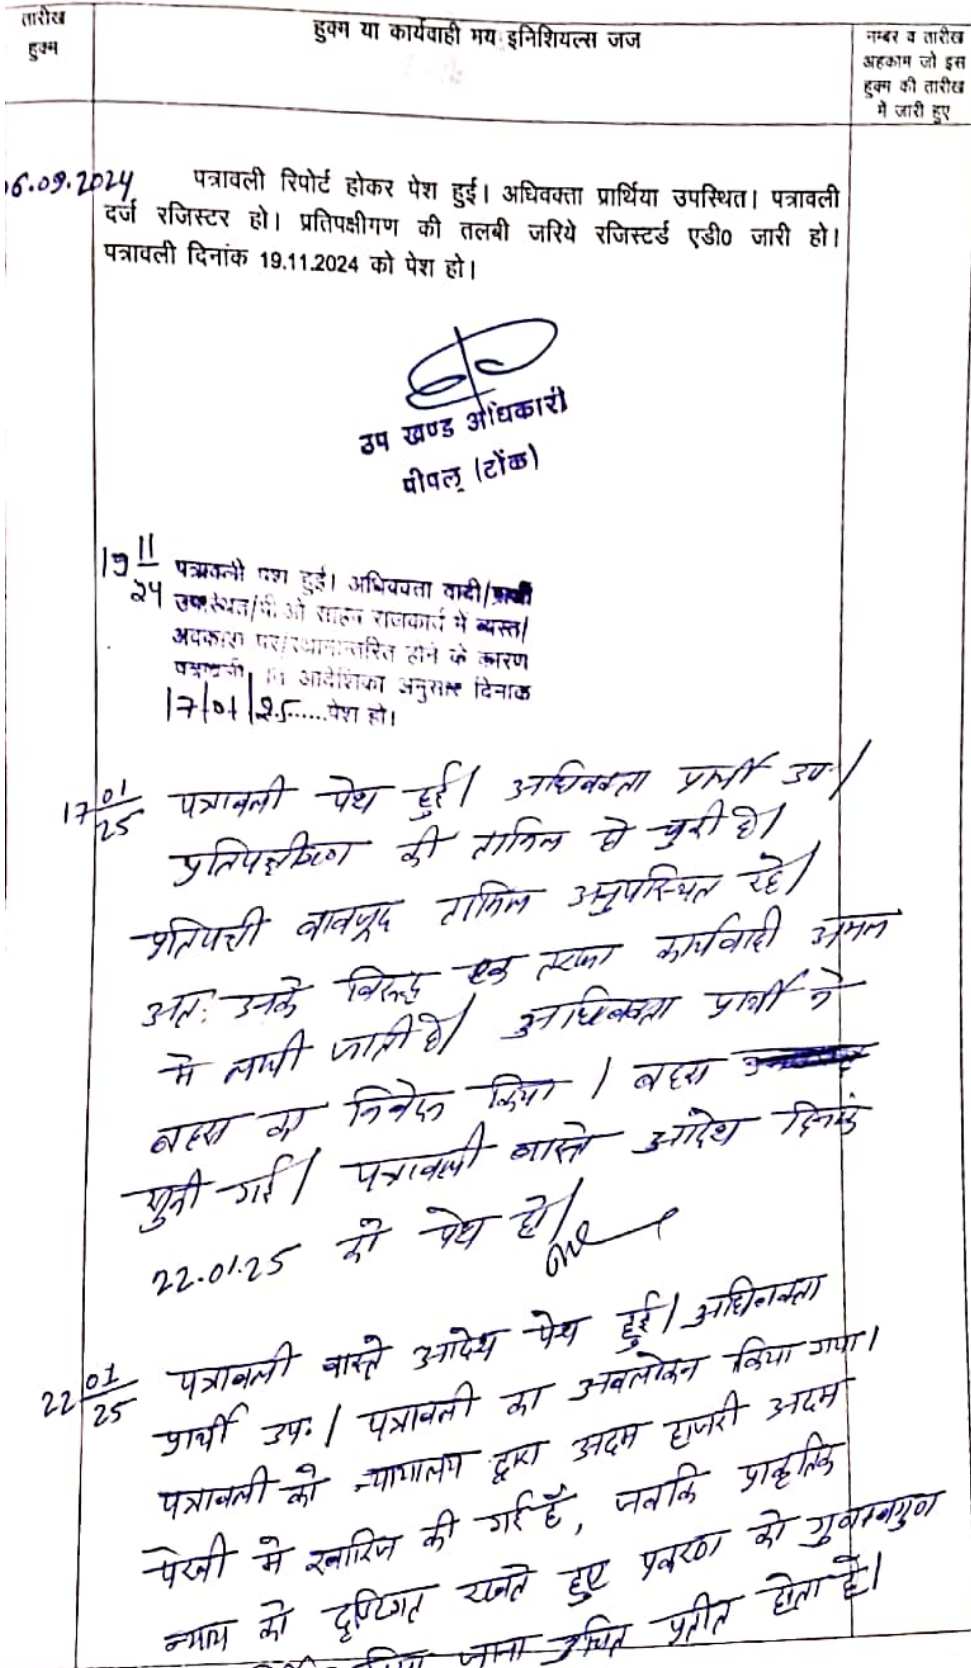 तारीख
हुक्म
हुक्म या कार्यवाही मय इनिशियल्स जज
नम्बर व तारीख
अहकाम जो इस
हुक्म की तारीख
में जारी हुए
06.09.2024 पत्रावली रिपोर्ट होकर पेश हुई। अधिवक्ता प्रार्थिया उपस्थित। पत्रावली
दर्ज रजिस्टर हो। प्रतिपक्षीगण की तलबी जरिये रजिस्टर्ड एडी0 जारी हो।
पत्रावली दिनांक 19.11.2024 को पेश हो।
उप खण्ड अधिकारी
पीपलू (टोंक)
19 11/24 पत्रावली पेश हुई। अधिवक्ता वादी/प्रार्थी
उपस्थित/पी ओ साहब राजकार्य में व्यस्त/
अवकाश पर/स्थानान्तरित होने के कारण
पत्रावली आदेशिका अनुसार दिनांक
17/01/25......पेश हो।
17 01/25 पत्रावली पेश हुई। अधिवक्ता प्रार्थी उप।
प्रतिपक्षीगण की तामिल हो चुकी है।
प्रतिपक्षी बावजूद तामिल अनुपस्थित रहे।
अतः उनके विरूद्ध एक तरफा कार्यवाही अमल
में लायी जाती है। अधिवक्ता प्रार्थी ने
बहस का निवेदन किया। बहस
सुनी गई। पत्रावली वास्ते आदेश दिनांक
22.01.25 को पेश हो।
22 01/25 पत्रावली वास्ते आदेश पेश हुई। अधिवक्ता
प्रार्थी उप.। पत्रावली का अवलोकन किया गया।
पत्रावली को न्यायालय द्वारा अदम हाजरी अदम
पेरवी में खारिज की गई है, जबकि प्राकृतिक
न्याय को दृष्टिगत रखते हुए प्रकरण को गुणावगुण
जाना उचित प्रतीत होता है।